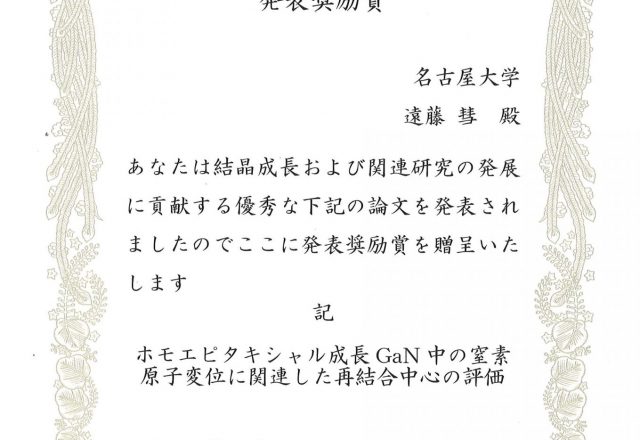 発表奨励賞
名古屋大学
遠藤 彗 殿
あなたは結晶成長および関連研究の発展
に貢献する優秀な下記の論文を発表され
ましたのでここに発表奨励賞を贈呈いた
します
記
ホモエピタキシャル成長 GaN 中の窒素
原子変位に関連した再結合中心の評価